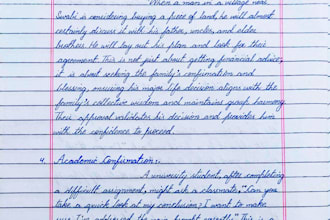 When a man in a village near
Swabi is considering buying a piece of land, he will almost
certainly discuss it with his father, uncles, and elder
brothers. He will lay out his plan and look for their
agreement. This is not just about getting financial advice;
it is about seeking the family's confirmation and
blessing, ensuring his major life decision aligns with the
family's collective wisdom and maintains group harmony.
Their approval validates his decision and provides him
with the confidence to proceed.
4. Academic Confirmation:
A university student, after completing
a difficult assignment, might ask a classmate, "Can you
take a quick look at my conclusion? I want to make
sure I'm addressing the main